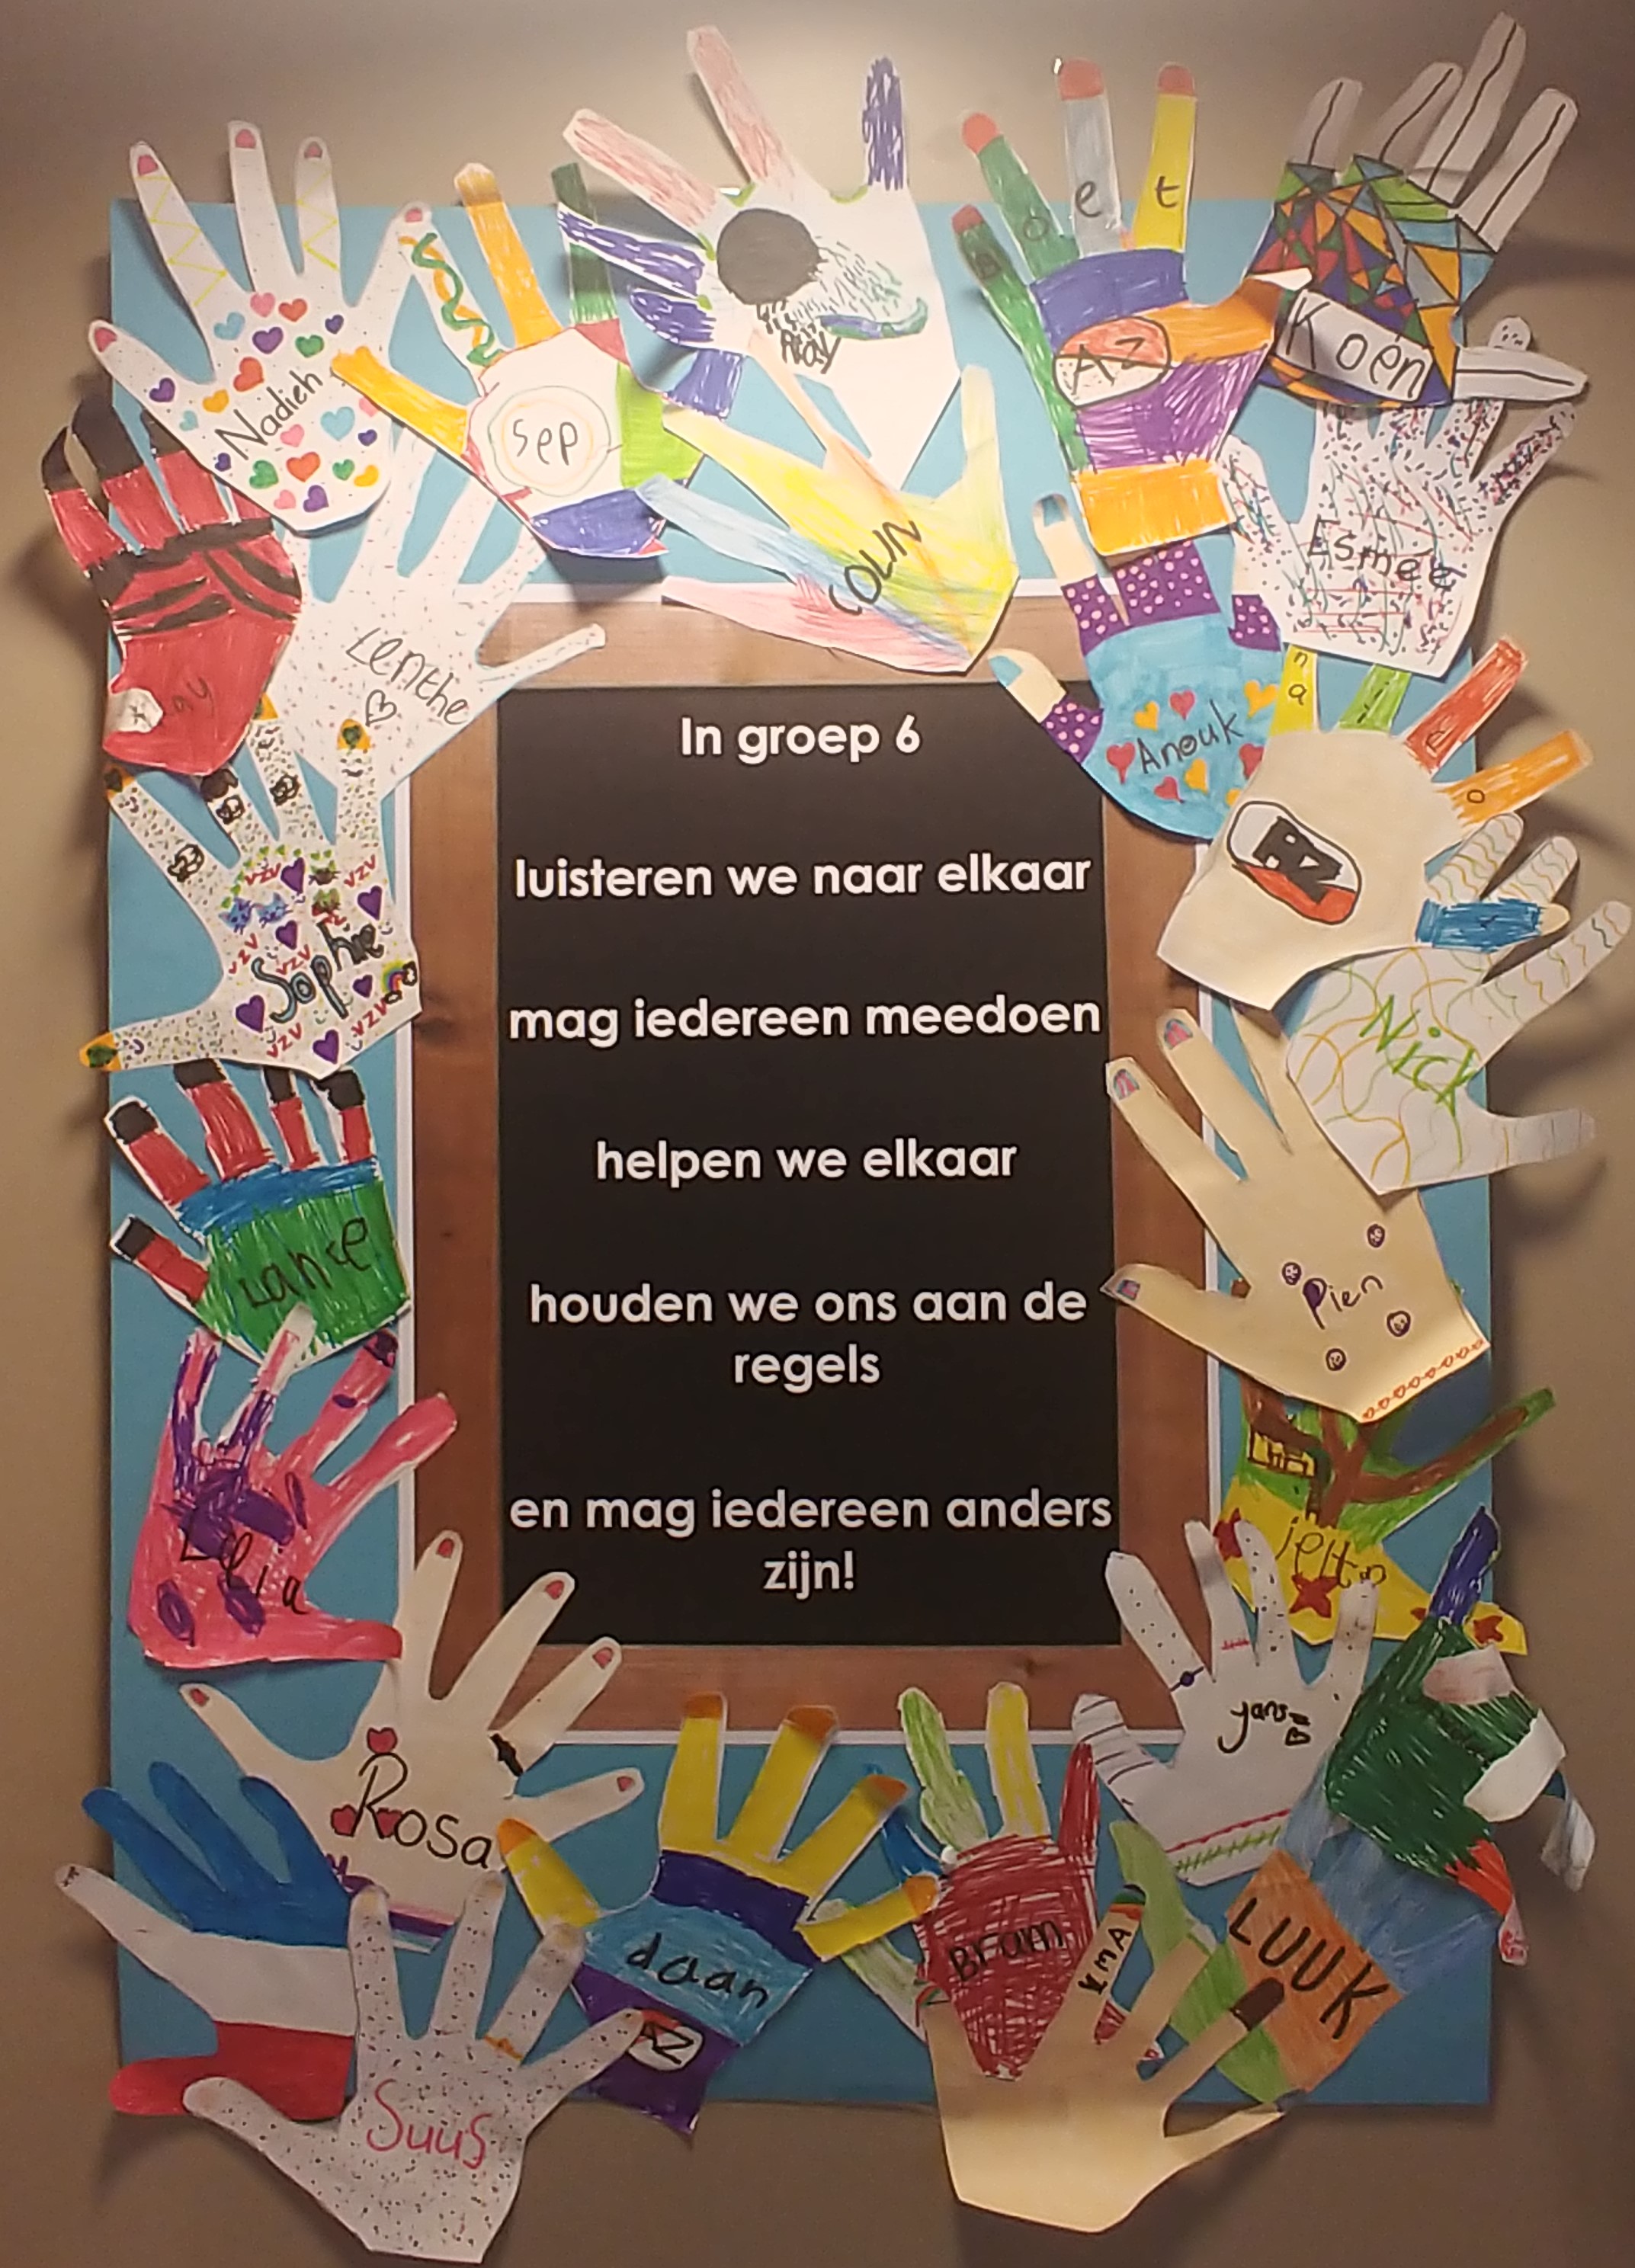 Nadieh
Sep
Ray
o e t
AZ
Koen
COLIN
Esmée
Lenthe
Anouk
In groep 6
luisteren we naar elkaar
mag iedereen meedoen
helpen we elkaar
houden we ons aan de
regels
en mag iedereen anders
zijn!
AZ
VZV
VZV
VZV
VZV
VZV
VZV
VZV
Sophie
Nick
Lance
Pien
Rosa
yans
daan
AZ
Bram
LUUK
Suus